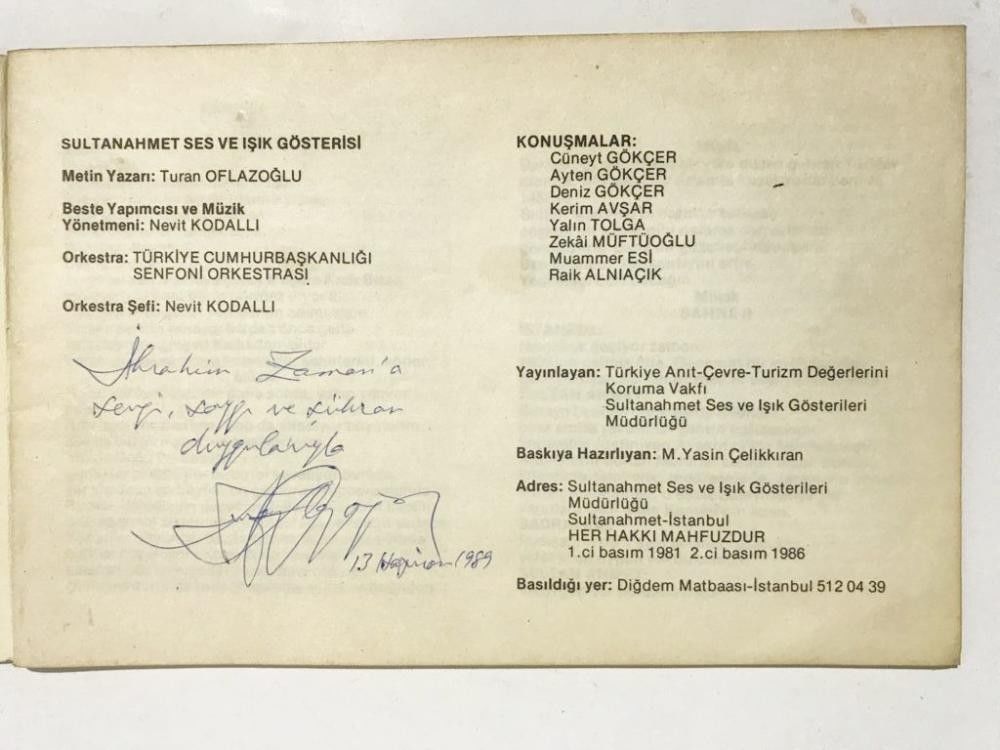 SULTANAHMET SES VE IŞIK GÖSTERİSİ
Metin Yazarı: Turan OFLAZOĞLU
Beste Yapımcısı ve Müzik
Yönetmeni: Nevit KODALLI
Orkestra: TÜRKİYE CUMHURBAŞKANLIĞI
SENFONİ ORKESTRASI
Orkestra Şefi: Nevit KODALLI
İbrahim Zaman'a
sevgi, saygı ve şükran
duygularıyla
13 Haziran 1989
KONUŞMALAR:
Cüneyt GÖKÇER
Ayten GÖKÇER
Deniz GÖKÇER
Kerim AVŞAR
Yalın TOLGA
Zekâi MÜFTÜOĞLU
Muammer ESİ
Raik ALNIAÇIK
Yayınlayan: Türkiye Anıt-Çevre-Turizm Değerlerini
Koruma Vakfı
Sultanahmet Ses ve Işık Gösterileri
Müdürlüğü
Baskıya Hazırlıyan: M.Yasin Çelikkıran
Adres: Sultanahmet Ses ve Işık Gösterileri
Müdürlüğü
Sultanahmet-İstanbul
HER HAKKI MAHFUZDUR
1.ci basım 1981 2.ci basım 1986
Basıldığı yer: Diğdem Matbaası-İstanbul 512 04 39